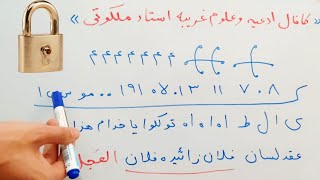 « کانال ادعیه و علوم غریبه استاد ملکوتی »
۴ ۴ ۴ ۴ ۴ ۴ ۴
۷۰۸ ۱۱ ۱۳. ۵۱ ۱۹۱ .. م و س ی ا
ی ا ل ط ا ه ا ه ا ه توکلوا یا خدام هذا
عقد لسان فلان زائیده فلان العجل